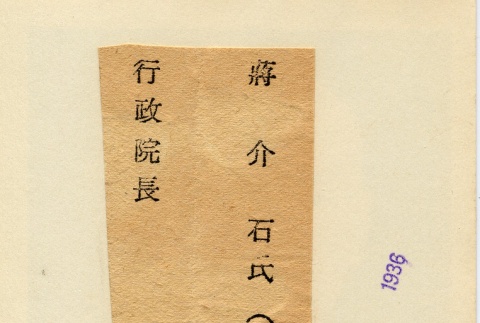 蔣介石氏（
行政院長
1936